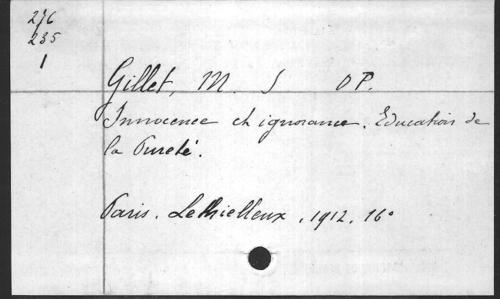 276
235
1
Gillet, M. S OP.
Innocence et ignorance. Education de
la Pureté.
Paris. Lethielleux, 1912, 16°